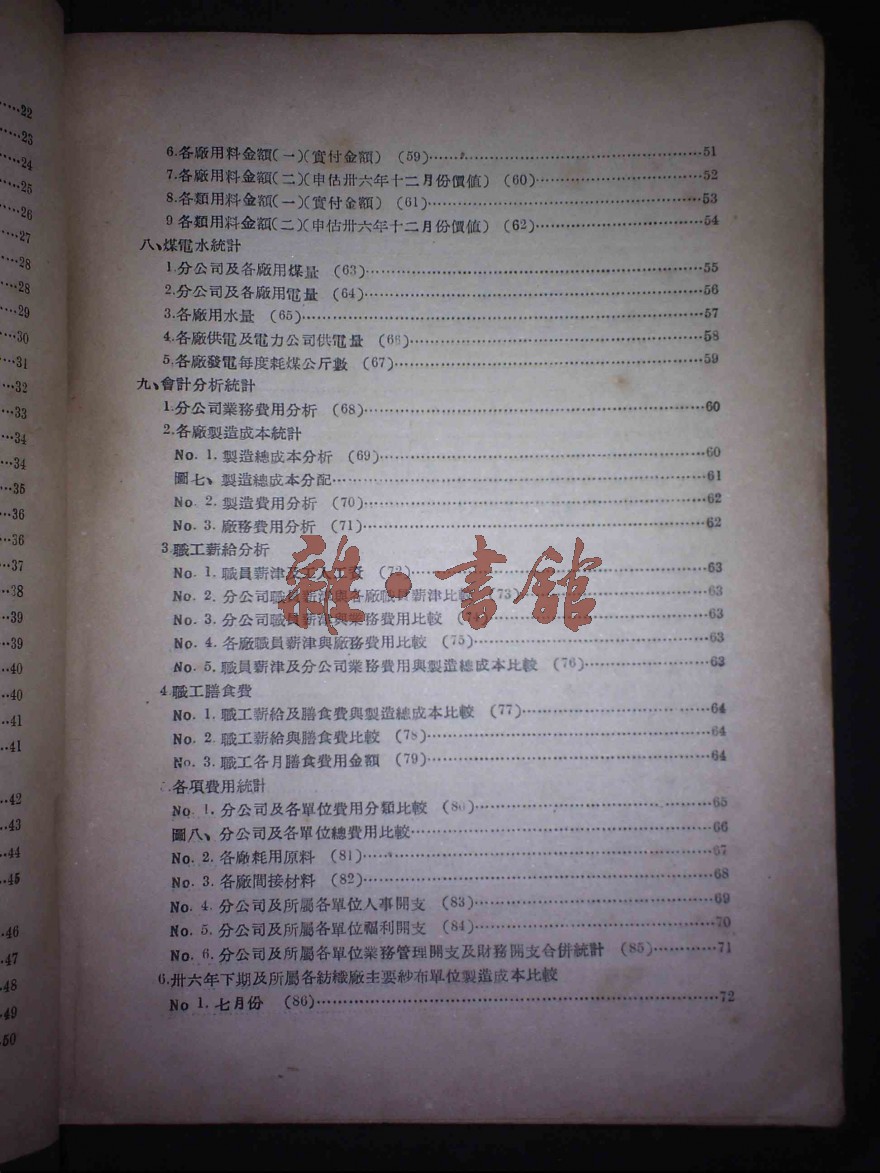 6.各廠用料金額(一)(實付金額) (59)……51
7.各廠用料金額(二)(申估卅六年十二月份價值) (60)……52
8.各類用料金額(一)(實付金額) (61)……53
9 各類用料金額(二)(申估卅六年十二月份價值) (62)……54
八、煤電水統計
1.分公司及各廠用煤量 (63)……55
2.分公司及各廠用電量 (64)……56
3.各廠用水量 (65)……57
4.各廠供電及電力公司供電量 (66)……58
5.各廠發電每度耗煤公斤數 (67)……59
九、會計分析統計
1.分公司業務費用分析 (68)……60
2.各廠製造成本統計
No. 1.製造總成本分析 (69)……60
圖七、製造總成本分配……61
No. 2.製造費用分析 (70)……62
No. 3.廠務費用分析 (71)……62
3.職工薪給分析
No. 1.職員薪津及工人工資 (72)……63
No. 2.分公司職員薪津與各廠職員薪津比較 (73)……63
No. 3.分公司職員薪津與業務費用比較……63
No. 4.各廠職員薪津與廠務費用比較 (75)……63
No. 5.職員薪津及分公司業務費用與製造總成本比較 (76)……63
4.職工膳食費
No. 1.職工薪給及膳食費與製造總成本比較 (77)……64
No. 2.職工薪給與膳食費比較 (78)……64
No. 3.職工各月膳食費用金額 (79)……64
.各項費用統計
No. 1.分公司及各單位費用分類比較 (80)……65
圖八、分公司及各單位總費用比較……66
No. 2.各廠耗用原料 (81)……67
No. 3.各廠間接材料 (82)……68
No. 4.分公司及所屬各單位人事開支 (83)……69
No. 5.分公司及所屬各單位福利開支 (84)……70
No. 6.分公司及所屬各單位業務管理開支及財務開支合併統計 (85)……71
6.卅六年下期及所屬各紡織廠主要紗布單位製造成本比較
No 1.七月份 (86)……72
雜·書館
…22
…23
…24
…25
…26
…27
…28
…28
…29
…30
…31
…32
…33
…34
…34
…35
…36
…36
…37
…38
…39
…39
…40
…41
…41
…42
…43
…44
…45
…46
…47
…48
…49
…50